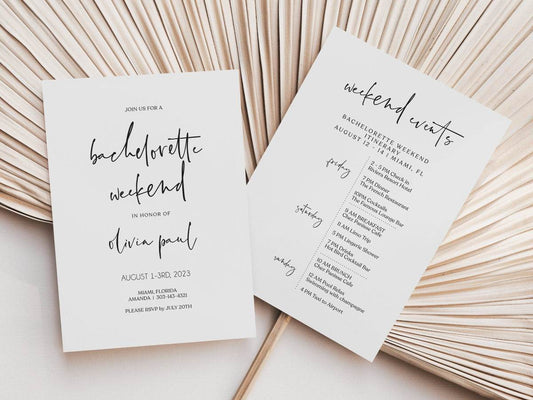 JOIN US FOR A
bachelorette
weekend
IN HONOR OF
olivia paul
AUGUST 1-3RD, 2023
MIAMI, FLORIDA
AMANDA | 303-143-4321
PLEASE RSVP by JULY 20TH
weekend events
BACHELORETTE WEEKEND
ITINERARY
AUGUST 12 - 14 | MIAMI, FL
friday
2 - 5 PM Check in
Riviera Resort Hotel
7 PM Dinner
The French Restaurant
10PM Cocktails
The Famous Lounge Bar
saturday
9 AM BREAKFAST
Chez Panisse Cafe
11 AM Limo Trip
5 PM Lingerie Shower
7 PM Drinks
Hot Bird Cocktail Bar
sunday
10 AM BRUNCH
Chez Panisse Cafe
12 AM Pool Relax
Swimming with champagne
4 PM Taxi to Airport